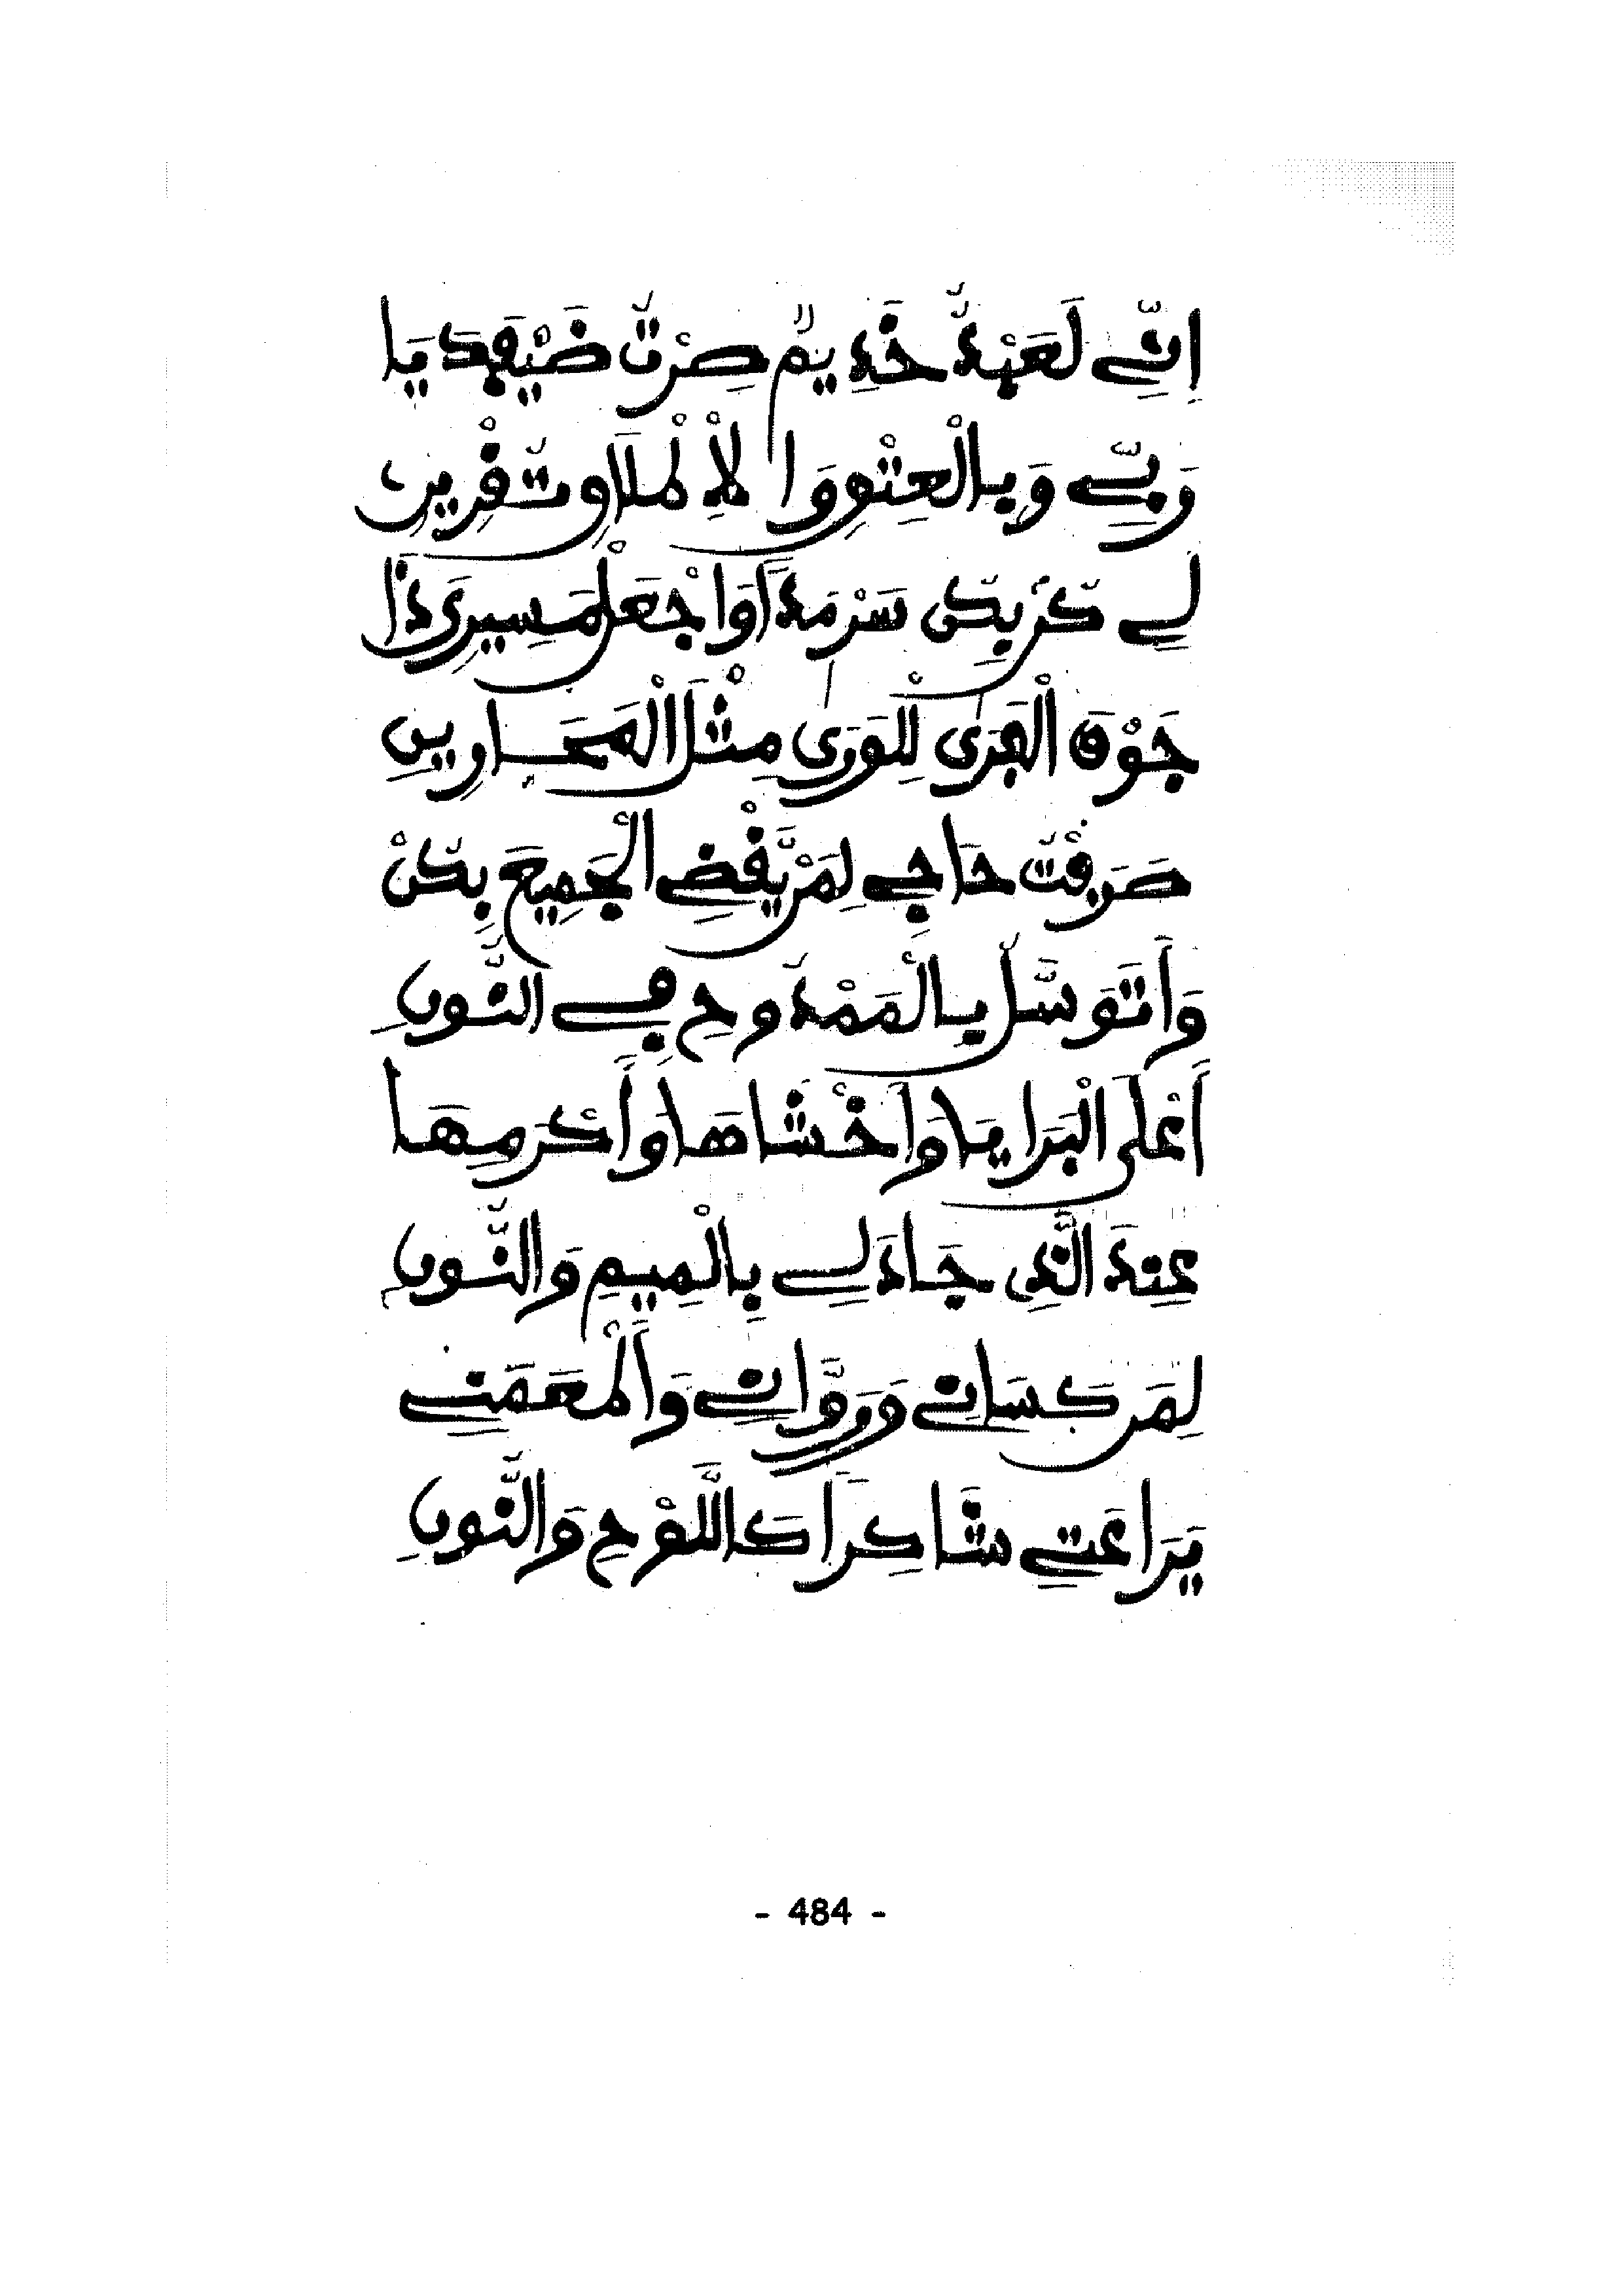 اِنِّے لَعَبْدٌ خَدِيمٌ صِرْتُ ضَيْفَكَ يَا
رَبِّے وَبِالْعِتْقِ وَالْإِمْلَاءِ تَفْرِينِ
لِے كُن بِكُن سَرْمَدًا وَاجْعَلْ مَسِيرِىَ ذَا
جَوْقَ الْقِرَىٰ لِلْوَرَىٰ مِثْلَ الْمَحَاوِينِ
صَرَفْتُ حَاجِے لِمَنْ يَّقْضِے الْجَمِيعَ بِكُنْ
وَأَتَوَسَّلُ بِالْمَمْدُوحِ فِے النُّونِ
أَعْلَى الْبَرَايَا وَأَخْشَاهَا وَأَكْرَمِهَا
عِندَ الَّذِى جَادَ لِے بِالْمِيمِ وَالنُّونِ
لِمَن كَسَانِے وَرَوَّانِے وَأَطْعَمَنِے
يَرَاعَتِے شَاكِرًا كَاللَّوْحِ وَالنُّونِ
- 484 -